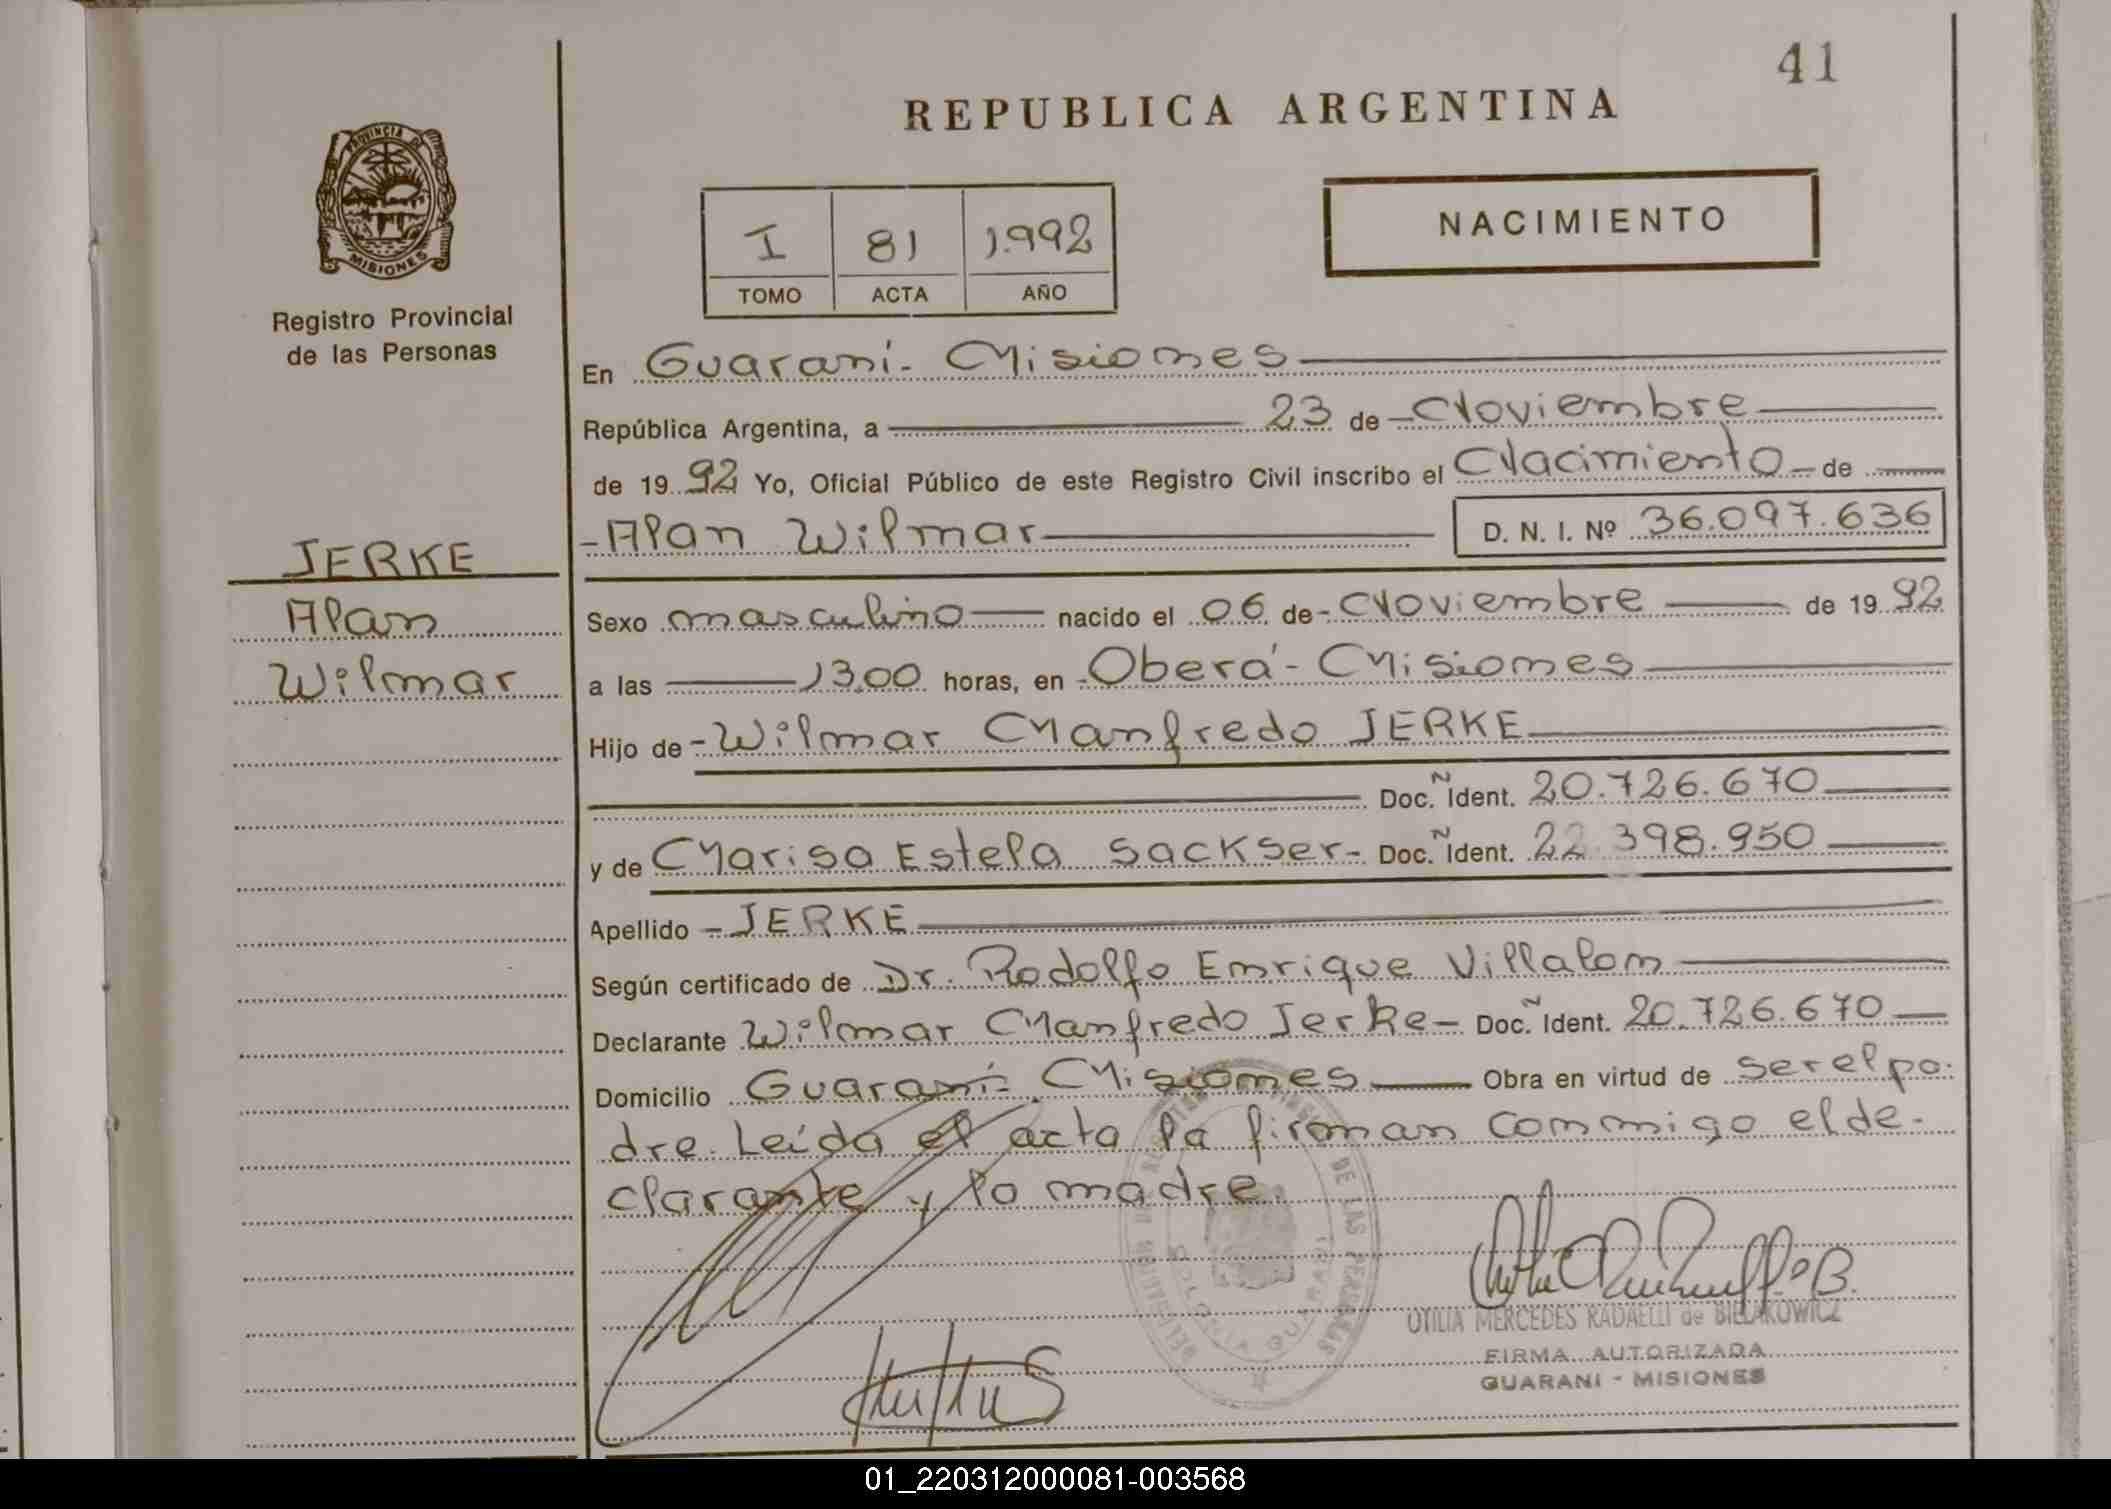 41
REPUBLICA ARGENTINA
PROVINCIA DE
MISIONES
Registro Provincial
de las Personas
NACIMIENTO
I 81 1.992
TOMO ACTA AÑO
En Guaraní - Misiones
República Argentina, a 23 de Noviembre
de 19 92 Yo, Oficial Público de este Registro Civil inscribo el Nacimiento de
- Alan Wilmar D. N. I. Nº 36.097.636
JERKE
Alan
Wilmar
Sexo masculino nacido el 06 de - Noviembre de 19 92
a las 13,00 horas, en - Oberá - Misiones
Hijo de - Wilmar Manfredo JERKE
Doc. Ñ Ident. 20.726.670
y de Marisa Estela Sackser - Doc. Ñ Ident. 22.398.950
Apellido - JERKE
Según certificado de Dr. Rodolfo Enrique Villalon
Declarante Wilmar Manfredo Jerke - Doc. Ñ Ident. 20.726.670
Domicilio Guaraní - Misiones Obra en virtud de ser el pa-
dre. Leída el acta la firman conmigo el de-
clarante y la madre.
DE LAS PERSONAS
COLONIA GUARANI
OTILIA MERCEDES RADAELLI de BIELAKOWICZ
FIRMA AUTORIZADA
GUARANI - MISIONES
01_220312000081-003568